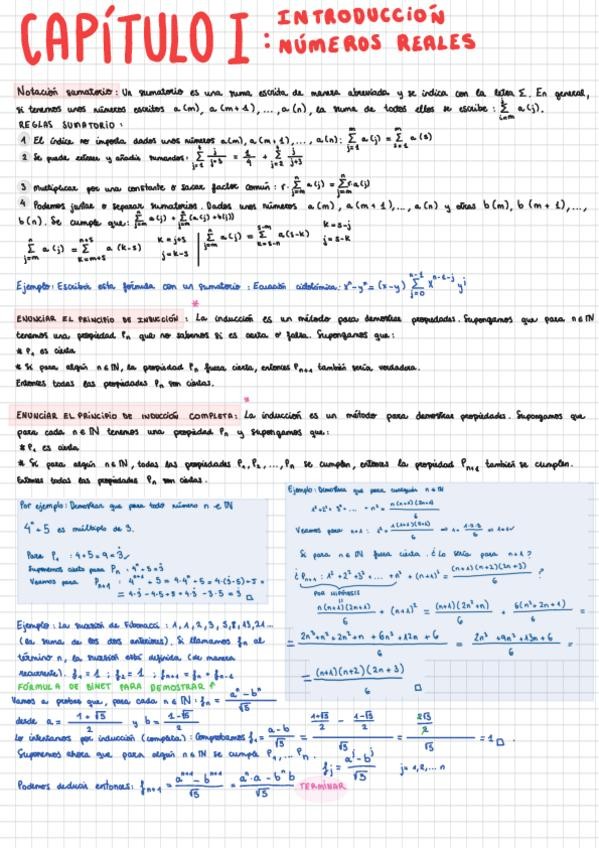 CAPÍTULO I : INTRODUCCIÓN
NÚMEROS REALES
Notación sumatorio: Un sumatorio es una suma escrita de manera abreviada y se indica con la letra Σ. En general,
si tenemos unos números escritos a(m), a(m+1), ..., a(n), la suma de todos ellos se escribe: Σ a(j).
REGLAS SUMATORIO:
1 El índice no importa dados unos números a(m), a(m+1), ..., a(n):
2 Se puede extraer y añadir sumandos:
3 Multiplicar por una constante o sacar factor común:
4 Podemos juntar o separar sumatorios. Dados unos números a(m), a(m+1), ..., a(n) y otras b(m), b(m+1), ...,
b(n). Se cumple que:
k=j+s
j=k-s
k=s-j
j=s-k
Ejemplo: Escribir esta fórmula con un sumatorio: Ecuación ciclotómica: xⁿ-yⁿ = (x-y) Σ xⁿ⁻¹⁻ʲ yʲ
ENUNCIAR EL PRINCIPIO DE INDUCCIÓN: La inducción es un método para demostrar propiedades. Supongamos que para n∈ℕ
tenemos una propiedad Pₙ que no sabemos si es cierta o falsa. Supongamos que:
* P₁ es cierta
* Si para algún n∈ℕ, la propiedad Pₙ fuera cierta, entonces Pₙ₊₁ también sería verdadera.
Entonces todas las propiedades Pₙ son ciertas.
ENUNCIAR EL PRINCIPIO DE INDUCCIÓN COMPLETA: La inducción es un método para demostrar propiedades. Supongamos que
para cada n∈ℕ tenemos una propiedad Pₙ y supongamos que:
* P₁ es cierta
* Si para algún n∈ℕ, todas las propiedades P₁, P₂, ..., Pₙ se cumplen, entonces la propiedad Pₙ₊₁ también se cumplen.
Entonces todas las propiedades Pₙ son ciertas.
Por ejemplo: Demostrar que para todo número n∈ℕ
4ⁿ+5 es múltiplo de 3.
Para P₁: 4+5=9=3̇
Suponemos cierto para Pₙ: 4ⁿ+5=3̇
Veamos para Pₙ₊₁: 4ⁿ⁺¹+5 = 4·4ⁿ+5 = 4·(3̇-5)+5 =
= 4·3̇-4·5+5 = 4·3̇-3·5 = 3̇ □
Ejemplo: Demostrar que para cualquier n∈ℕ
1²+2²+3²+...+n² = n(n+1)(2n+1)/6
Veamos para n=1:
Si para n∈ℕ fuera cierta. ¿Lo sería para n+1?
¿Pₙ₊₁: 1²+2²+3²+...+n²+(n+1)² = (n+1)(n+2)(2n+3)/6 ?
POR HIPÓTESIS
n(n+1)(2n+1)/6 + (n+1)² = (n+1)(2n²+n)/6 + 6(n²+2n+1)/6 =
= 2n³+n²+2n²+n+6n²+12n+6/6 = 2n³+9n²+13n+6/6 =
= (n+1)(n+2)(2n+3)/6 □
Ejemplo: La sucesión de Fibonacci: 1,1,2,3,5,8,13,21...
(la suma de los dos anteriores). Si llamamos fₙ al
término n, la sucesión está definida (de manera
recurrente). f₁=1; f₂=1;
FÓRMULA DE BINET PARA DEMOSTRAR ↑
Vamos a probar que, para cada n∈ℕ: fₙ = aⁿ-bⁿ/√5
desde a = 1+√5/2 y b = 1-√5/2
Lo intentamos por inducción (completa): Comprobamos f₁ = a-b/√5 = = 1 □.
Suponemos ahora que para algún n∈ℕ se cumple P₁, ... Pₙ. fⱼ = aʲ-bʲ/√5 j=1,2,...n
Podemos deducir entonces: fₙ₊₁ = aⁿ⁺¹-bⁿ⁺¹/√5 = aⁿ·a-bⁿ·b/√5 TERMINAR